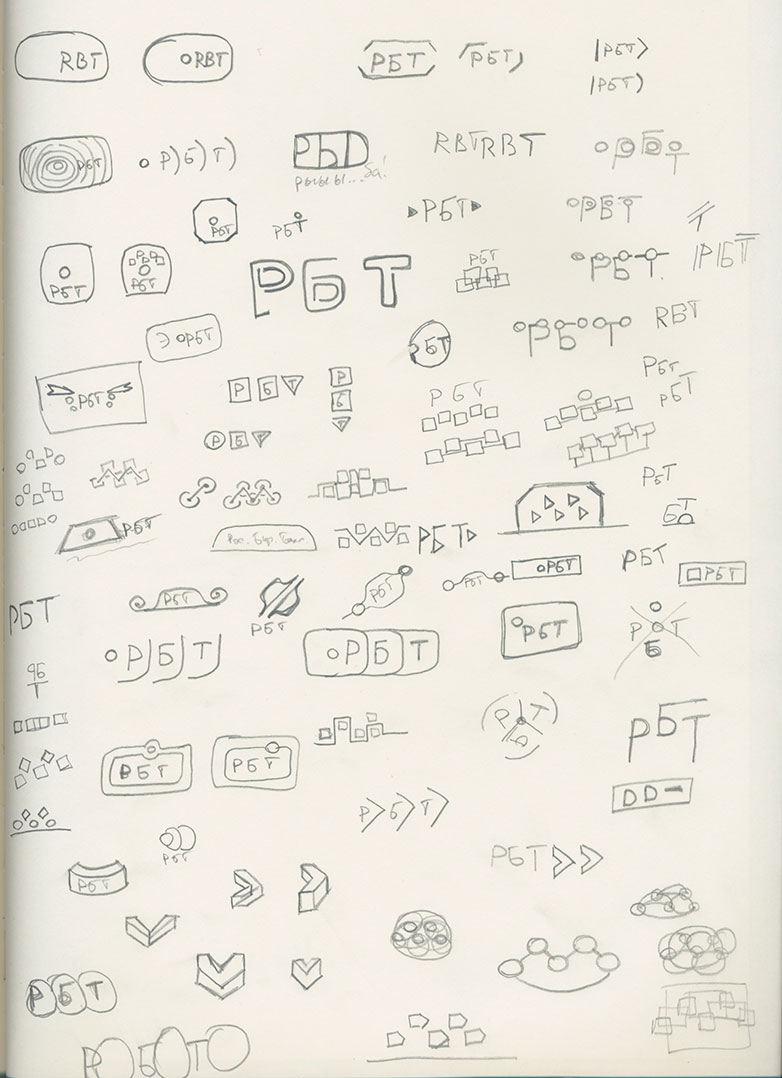 RBT
RBT
РБТ
РБТ
РБТ
РБТ
РБТ
Р)Б)Т)
РЫЫЫ...Ба!
RBTRBT
РБТ
РБТ
РБТ
РБТ
РБТ
РБТ
РБТ
РБТ
РБТ
РБТ
РБТ
Э РБТ
РБТ
РБТ
RBT
РБТ
Р Б Т
Р
Б
Т
РБТ
РБТ
РБТ
Р Б Т
РБТ
БТ
РБТ
РБТ
РБТ
РБТ
РБТ
РБТ
РБТ
РБТ
РБТ
РБТ
РБТ
Р Т
Б
РБТ
РБТ
Р Т
Б
РБТ
РБТ
РБТ
Р>Б>Т>
РБТ
РБТ
РБТ
РБТ